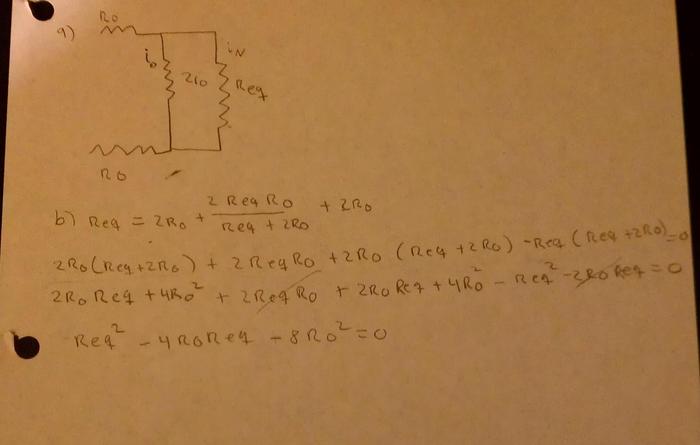 a)
R0
i0
iN
2r0
Req
R0
b) Req = 2R0 + 2 Req R0 / Req + 2R0 + 2R0
2R0 (Req+2R0) + 2ReqR0 + 2R0 (Req + 2R0) - Req (Req + 2R0) = 0
2R0 Req + 4R0² + 2ReqR0 + 2R0 Req + 4R0² - Req² - 2R0 Req = 0
Req² - 4R0Req - 8R0² = 0